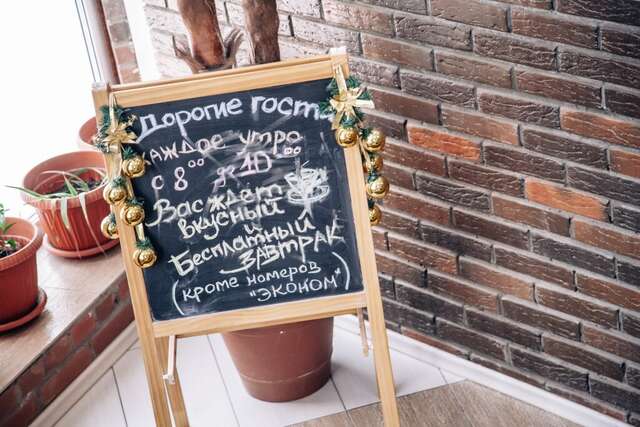 Дорогие гости
каждое утро
с 8⁰⁰ до 10⁰⁰
Вас ждёт
вкусный
и
Бесплатный
завтрак
(кроме номеров
"эконом")